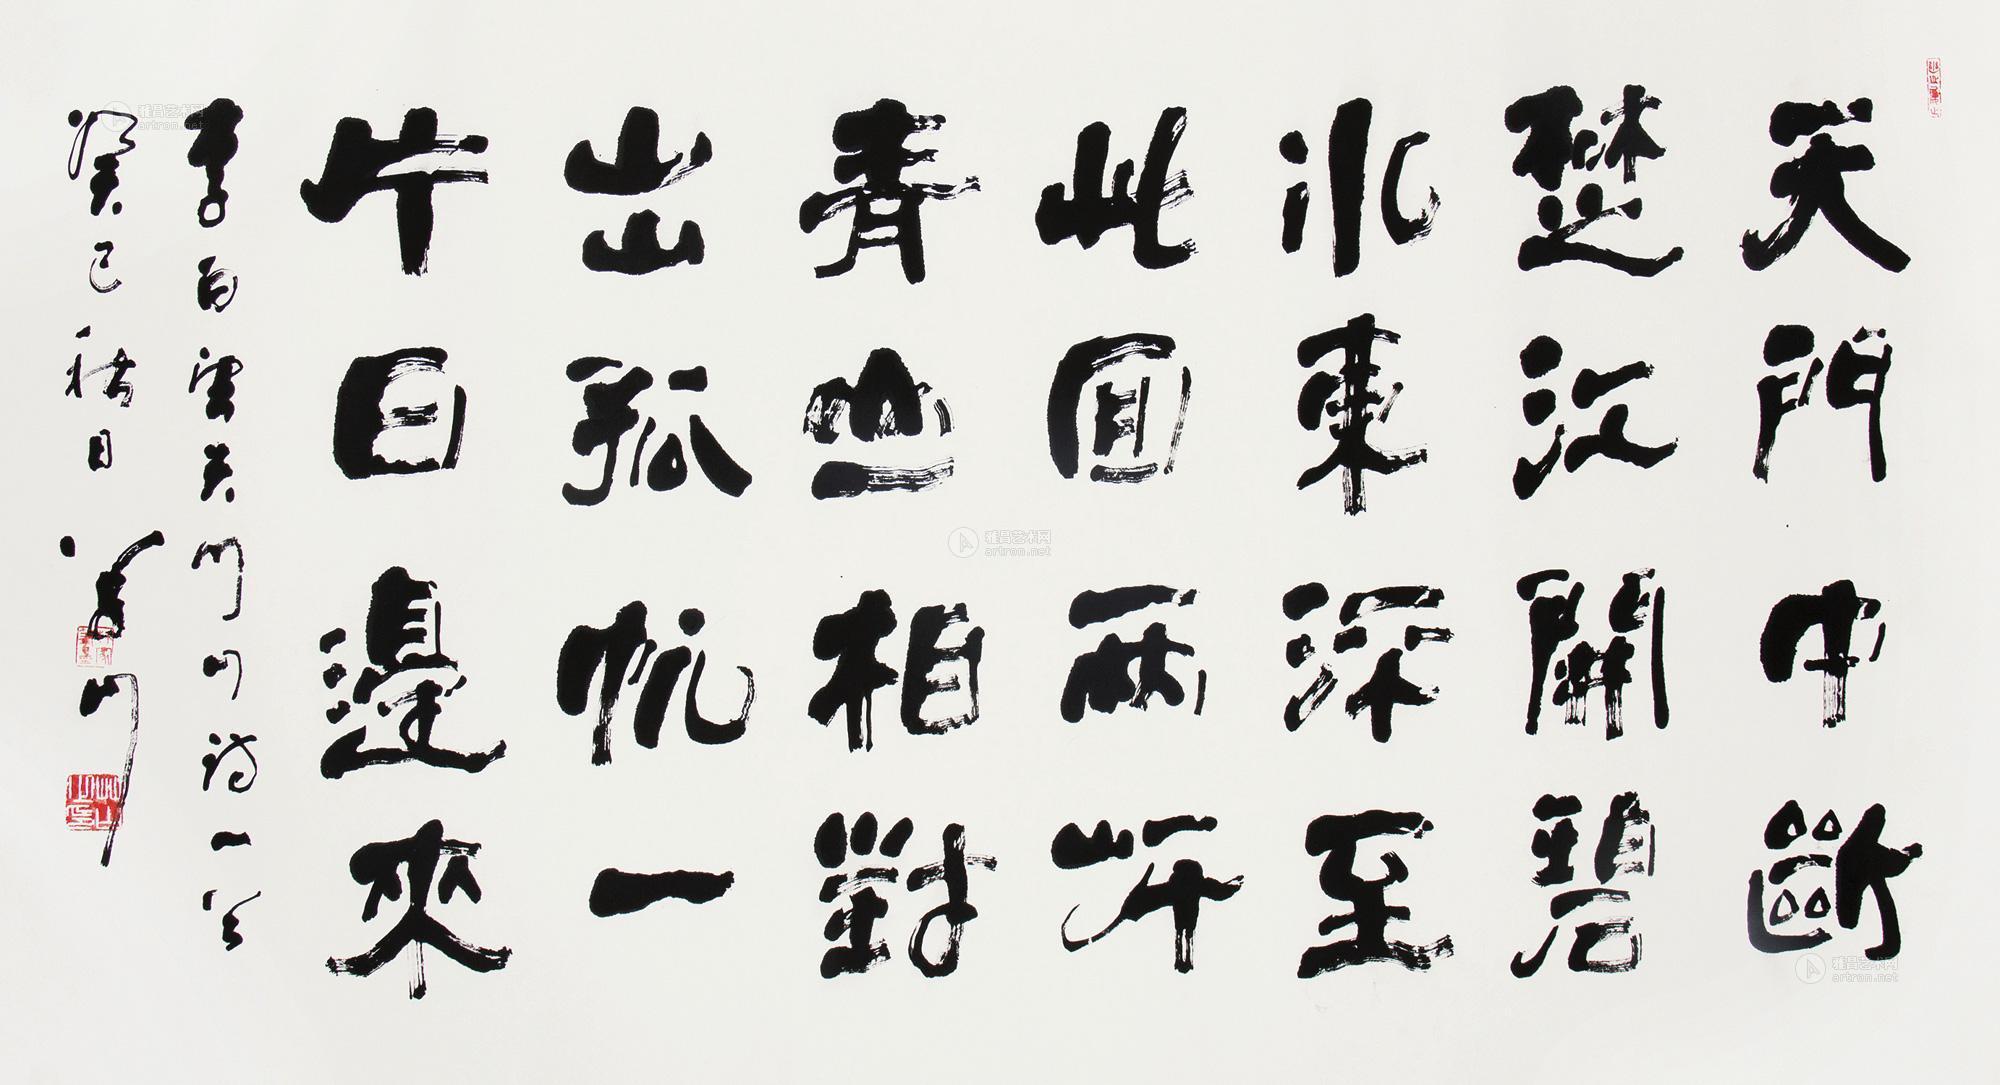 天門中斷
楚江開碧
水東深至
此囬兩岸
青山相對
出孤帆一
片日邊來
李白望天門山詩一首
癸巳秋日
雅昌艺术网
artron.net
雅昌艺术网
artron.net
雅昌艺术网
artron.net